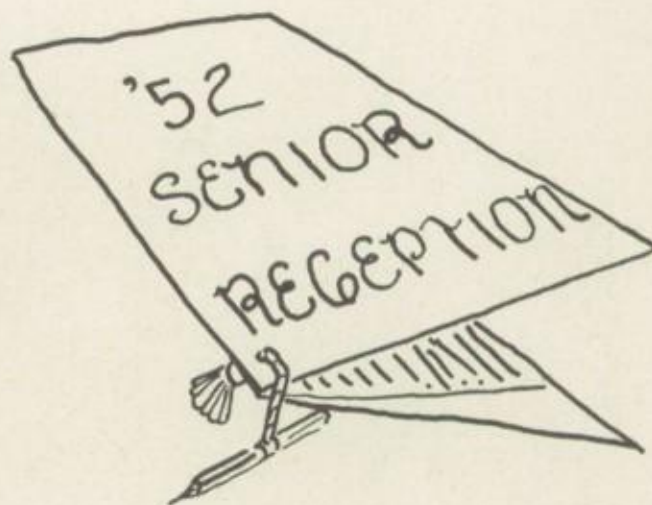 '52
SENIOR
RECEPTION